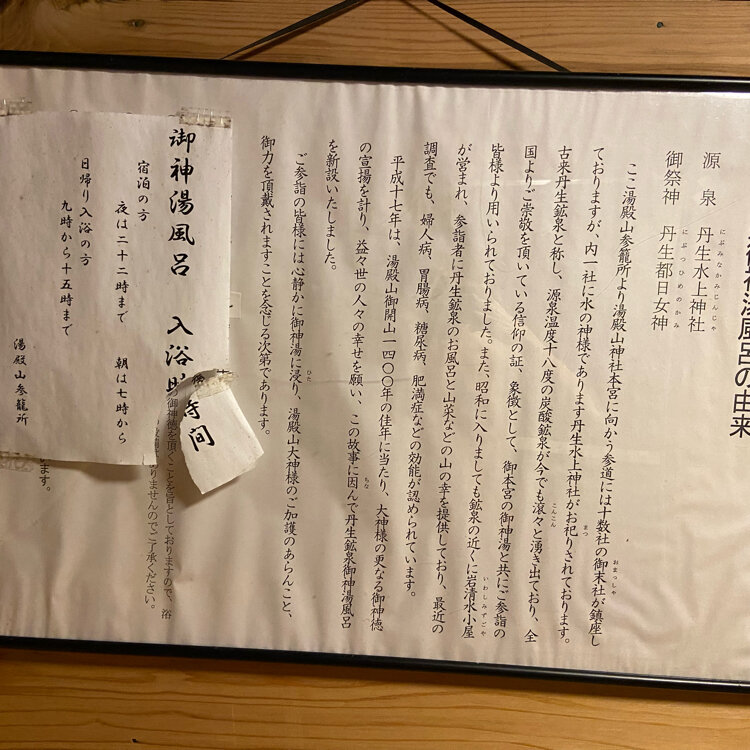 御神湯風呂の由来
源泉　丹生水上神社
にぶみなかみじんじゃ
御祭神　丹生都日女神
にぶつひめのかみ
ここ湯殿山参籠所より湯殿山神社本宮に向かう参道には十数社の御末社が鎮座し
おまっしゃ
ておりますが、内一社に水の神様であります丹生水上神社がお祀りされております。
まつ
古来丹生鉱泉と称し、源泉温度十八度の炭酸鉱泉が今でも滾々と湧き出ており、全
こんこん
国よりご崇敬を頂いている信仰の証、象徴として、御本宮の御神湯と共にご参詣の
皆様より用いられておりました。また、昭和に入りましても鉱泉の近くに岩清水小屋
いわしみずごや
が営まれ、参詣者に丹生鉱泉のお風呂と山菜などの山の幸を提供しており、最近の
調査でも、婦人病、胃腸病、糖尿病、肥満症などの効能が認められています。
平成十七年は、湯殿山御開山一四〇〇年の佳年に当たり、大神様の更なる御神徳
の宣揚を計り、益々世の人々の幸せを願い、この故事に因んで丹生鉱泉御神湯風呂
ちな
を新設いたしました。
ご参詣の皆様には心静かに御神湯に浸り、湯殿山大神様のご加護のあらんこと、
ひた
御力を頂戴されますことを念じる次第であります。
の御神徳を頂くことを旨としておりますので、浴
ありませんのでご了承ください。
ます。
御神湯風呂　入浴時間
宿泊の方
夜は二十二時まで　朝は七時から
日帰り入浴の方
九時から十五時まで
湯殿山参籠所